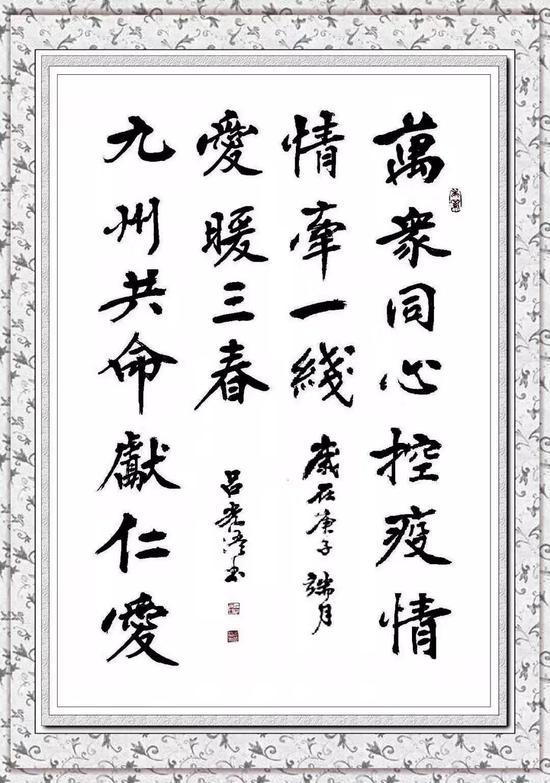 萬衆同心控疫情
情牽一綫
歲在庚子端月
九州共命獻仁愛
愛暖三春
呂光 書